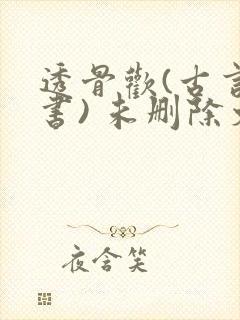 透骨歡(古言
書)未删除
夜含笑